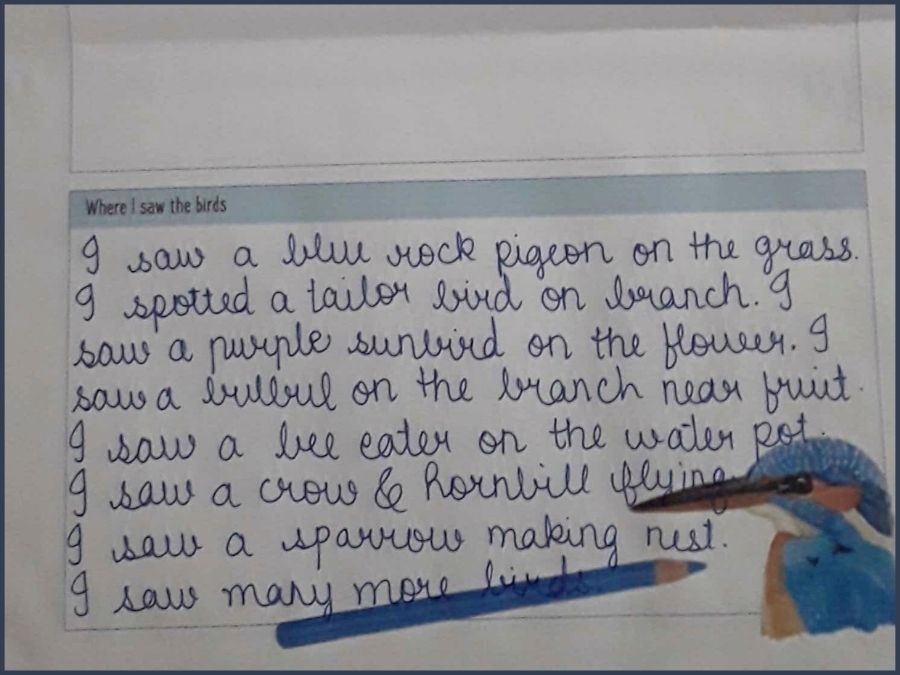 Where I saw the birds
I saw a blue rock pigeon on the grass.
I spotted a tailor bird on branch. I
saw a purple sunbird on the flower. I
saw a bulbul on the branch near fruit.
I saw a bee eater on the water pot.
I saw a crow & hornbill flying
I saw a sparrow making nest.
I saw many more birds